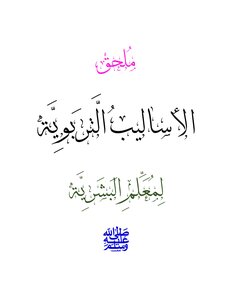 مُلحَق
الأساليبُ التَّربَويَّة
لِمُعَلِّمِ البَشَريَّة
ﷺ